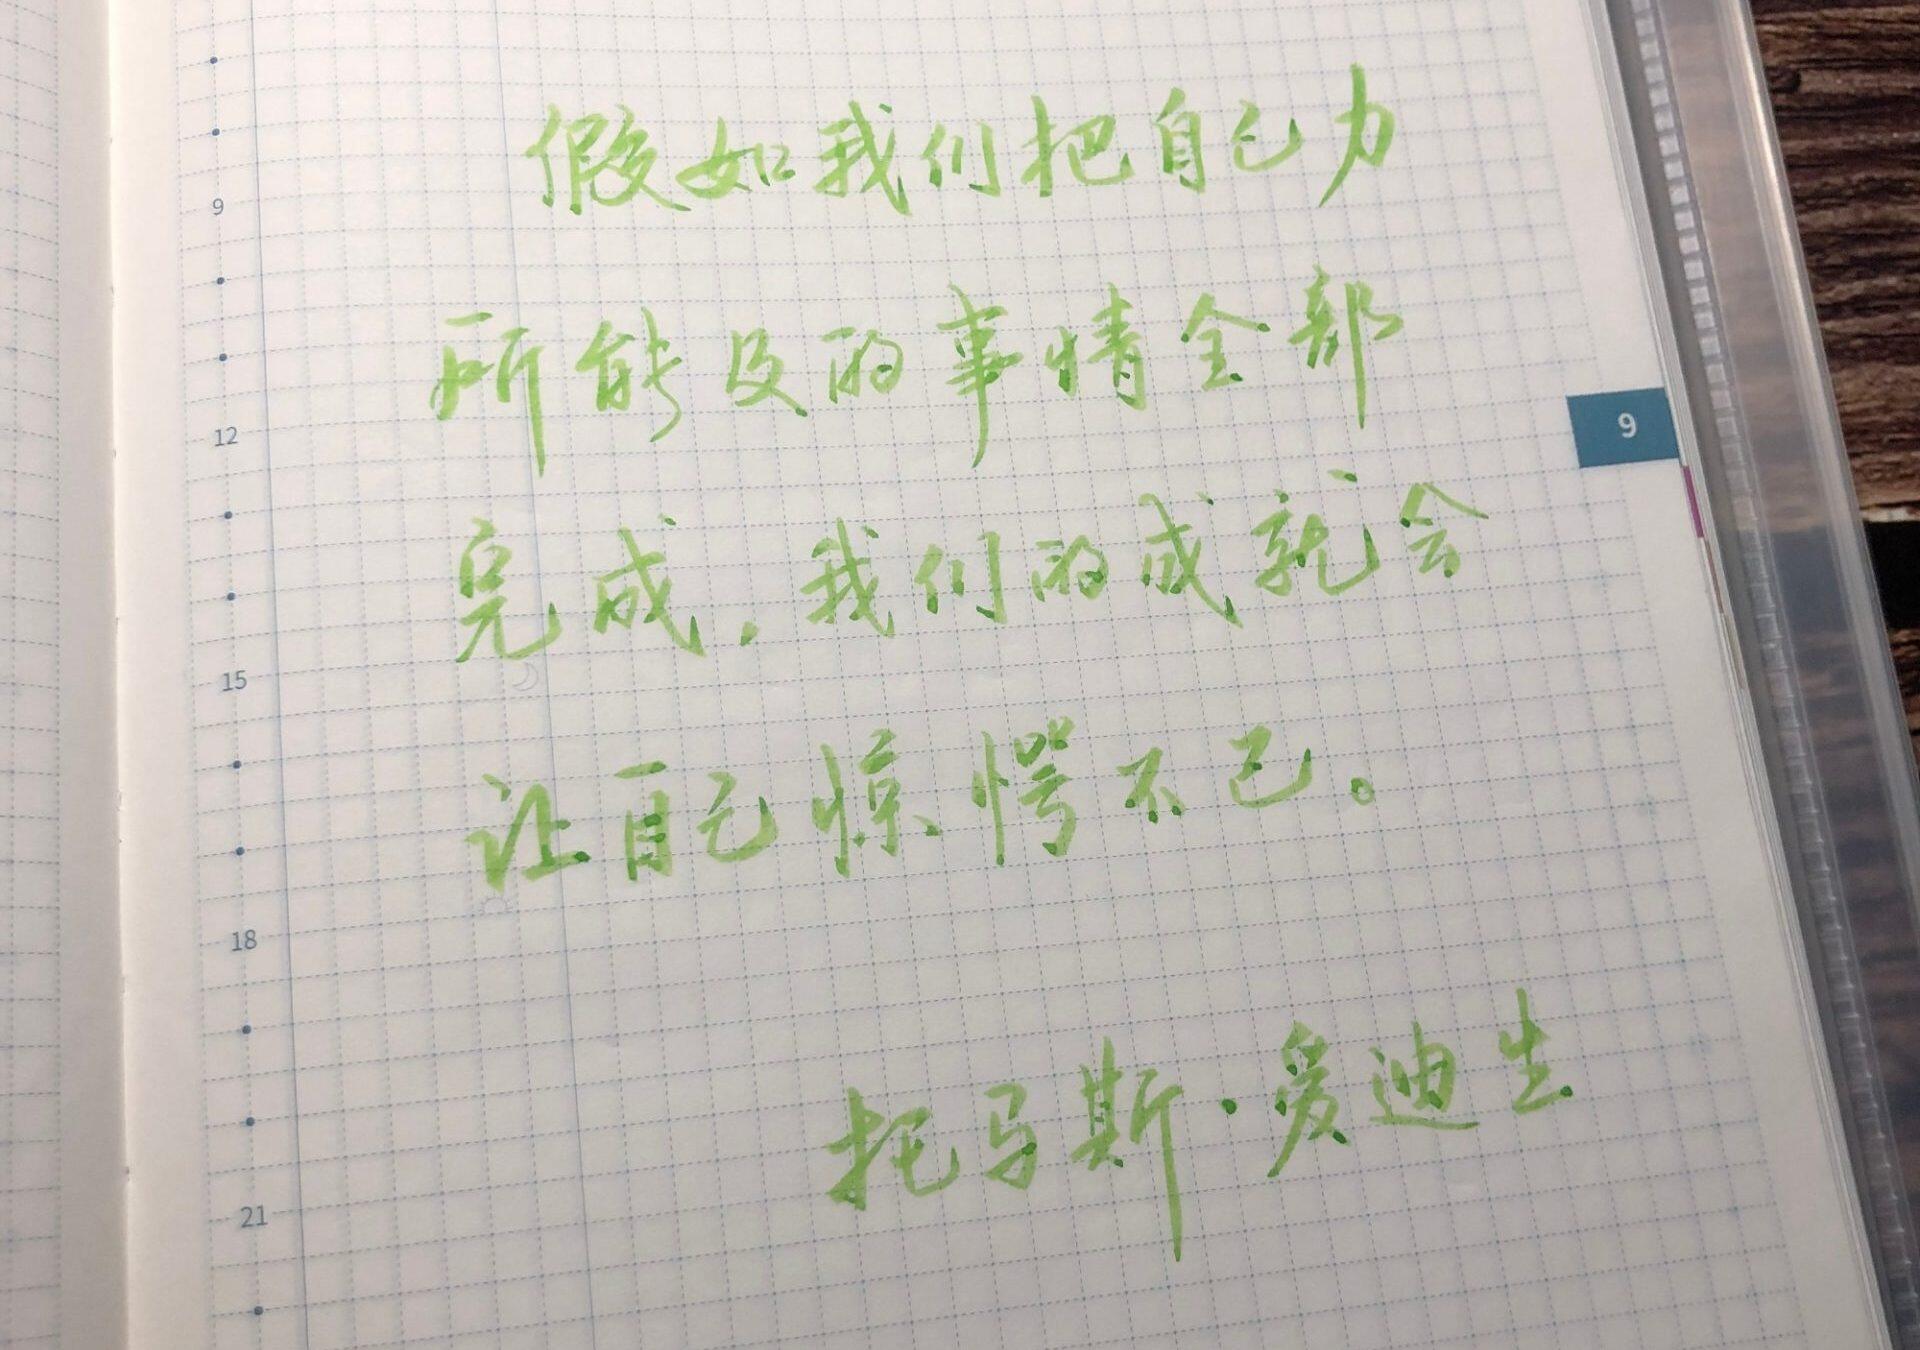 假如我们把自己力
9
所能及的事情全部
9
12
完成，我们的成就会
15
让自己惊愕不已。
18
托马斯·爱迪生
21